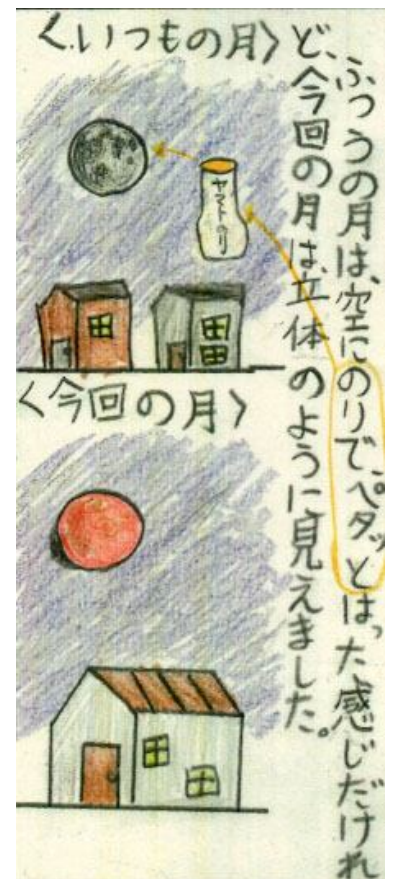 ふつうの月は、空にのりで、ペタッとはった感じだけれ
ど、今回の月は、立体のように見えました。
<いつもの月>
ヤマトのり
<今回の月>